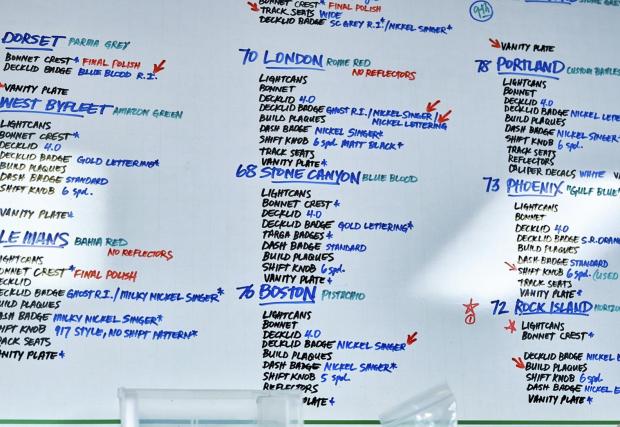 BONNET CREST* FINAL POLISH
TRACK SEATS WIDE
DECKLID BADGE SC GREY R.I./NICKEL SINGER*
9th
DORSET PARMA GREY
BONNET CREST* FINAL POLISH
DECKLID BADGE BLUE BLOOD R.I.
VANITY PLATE
WEST BYFLEET AMAZON GREEN
LIGHTCANS
BONNET CREST*
DECKLID 4.0
DECKLID BADGE GOLD LETTERING*
BUILD PLAQUES
DASH BADGE STANDARD
SHIFT KNOB 6 spd.
VANITY PLATE*
LE MANS BAHIA RED
NO REFLECTORS
LIGHTCANS
BONNET CREST* FINAL POLISH
DECKLID
DECKLID BADGE GHOST R.I./MILKY NICKEL SINGER*
BUILD PLAQUES
DASH BADGE MILKY NICKEL SINGER*
SHIFT KNOB 917 STYLE, NO SHIFT PATTERN*
TRACK SEATS
VANITY PLATE*
70 LONDON ROME RED
NO REFLECTORS
LIGHTCANS
BONNET
DECKLID 4.0
DECKLID BADGE GHOST R.I./NICKEL SINGER/
BUILD PLAQUES NICKEL LETTERING
DASH BADGE NICKEL SINGER*
SHIFT KNOB 6 spd. MATT BLACK*
TRACK SEATS
VANITY PLATE*
68 STONE CANYON BLUE BLOOD
LIGHTCANS
BONNET CREST*
DECKLID 4.0
DECKLID BADGE GOLD LETTERING*
TARGA BADGES*
DASH BADGE STANDARD
BUILD PLAQUES
SHIFT KNOB 6 spd.
VANITY PLATE*
76 BOSTON PISTACHIO
LIGHTCANS
BONNET
DECKLID 4.0
DECKLID BADGE NICKEL SINGER
BUILD PLAQUES
DASH BADGE NICKEL SINGER*
SHIFT KNOB 5 spd.
REFLECTORS
PLATE*
VANITY PLATE
78 PORTLAND CUSTOM
LIGHTCANS
BONNET
DECKLID 4.0
DECKLID BADGE NICKEL
BUILD PLAQUES
DASH BADGE NICKEL SINGER
SHIFT KNOB 6 spd.
TRACK SEATS
REFLECTORS
CALIPER DECALS WHITE
73 PHOENIX "GULF BLUE"
LIGHTCANS
BONNET
DECKLID 4.0
DECKLID BADGE S.R.
BUILD PLAQUES
DASH BADGE STANDARD
SHIFT KNOB 6 spd. (USED
TRACK SEATS
VANITY PLATE*
1 72 ROCK ISLAND
LIGHTCANS
BONNET CREST*
DECKLID BADGE NICKEL
BUILD PLAQUES
SHIFT KNOB 6 spd.
DASH BADGE NICKEL
VANITY PLATE*